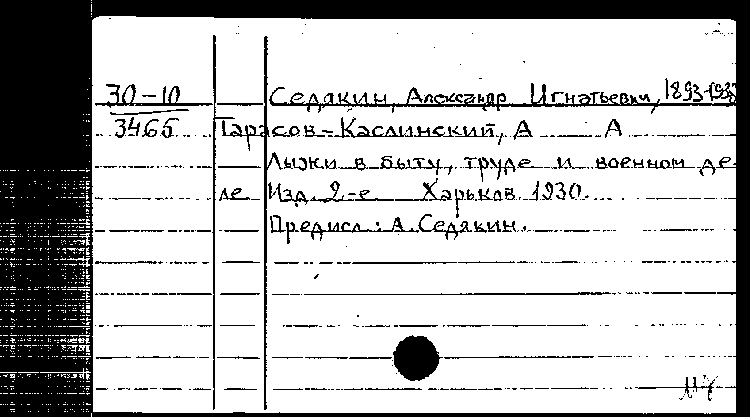 30-10
3465
Седякин, Александр Игнатьевич, 1893-1938
Тарасов-Каслинский, А А
Лыжи в быту, труде и военном де-
ле Изд. 2-е Харьков 1930.
Предисл: А. Седякин.